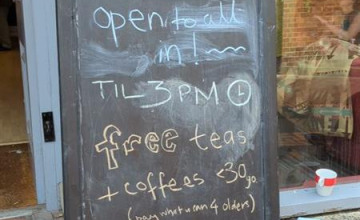 open to all
in!
TIL 3PM
free teas
+ coffees <30yo
(pay what u can 4 olders)